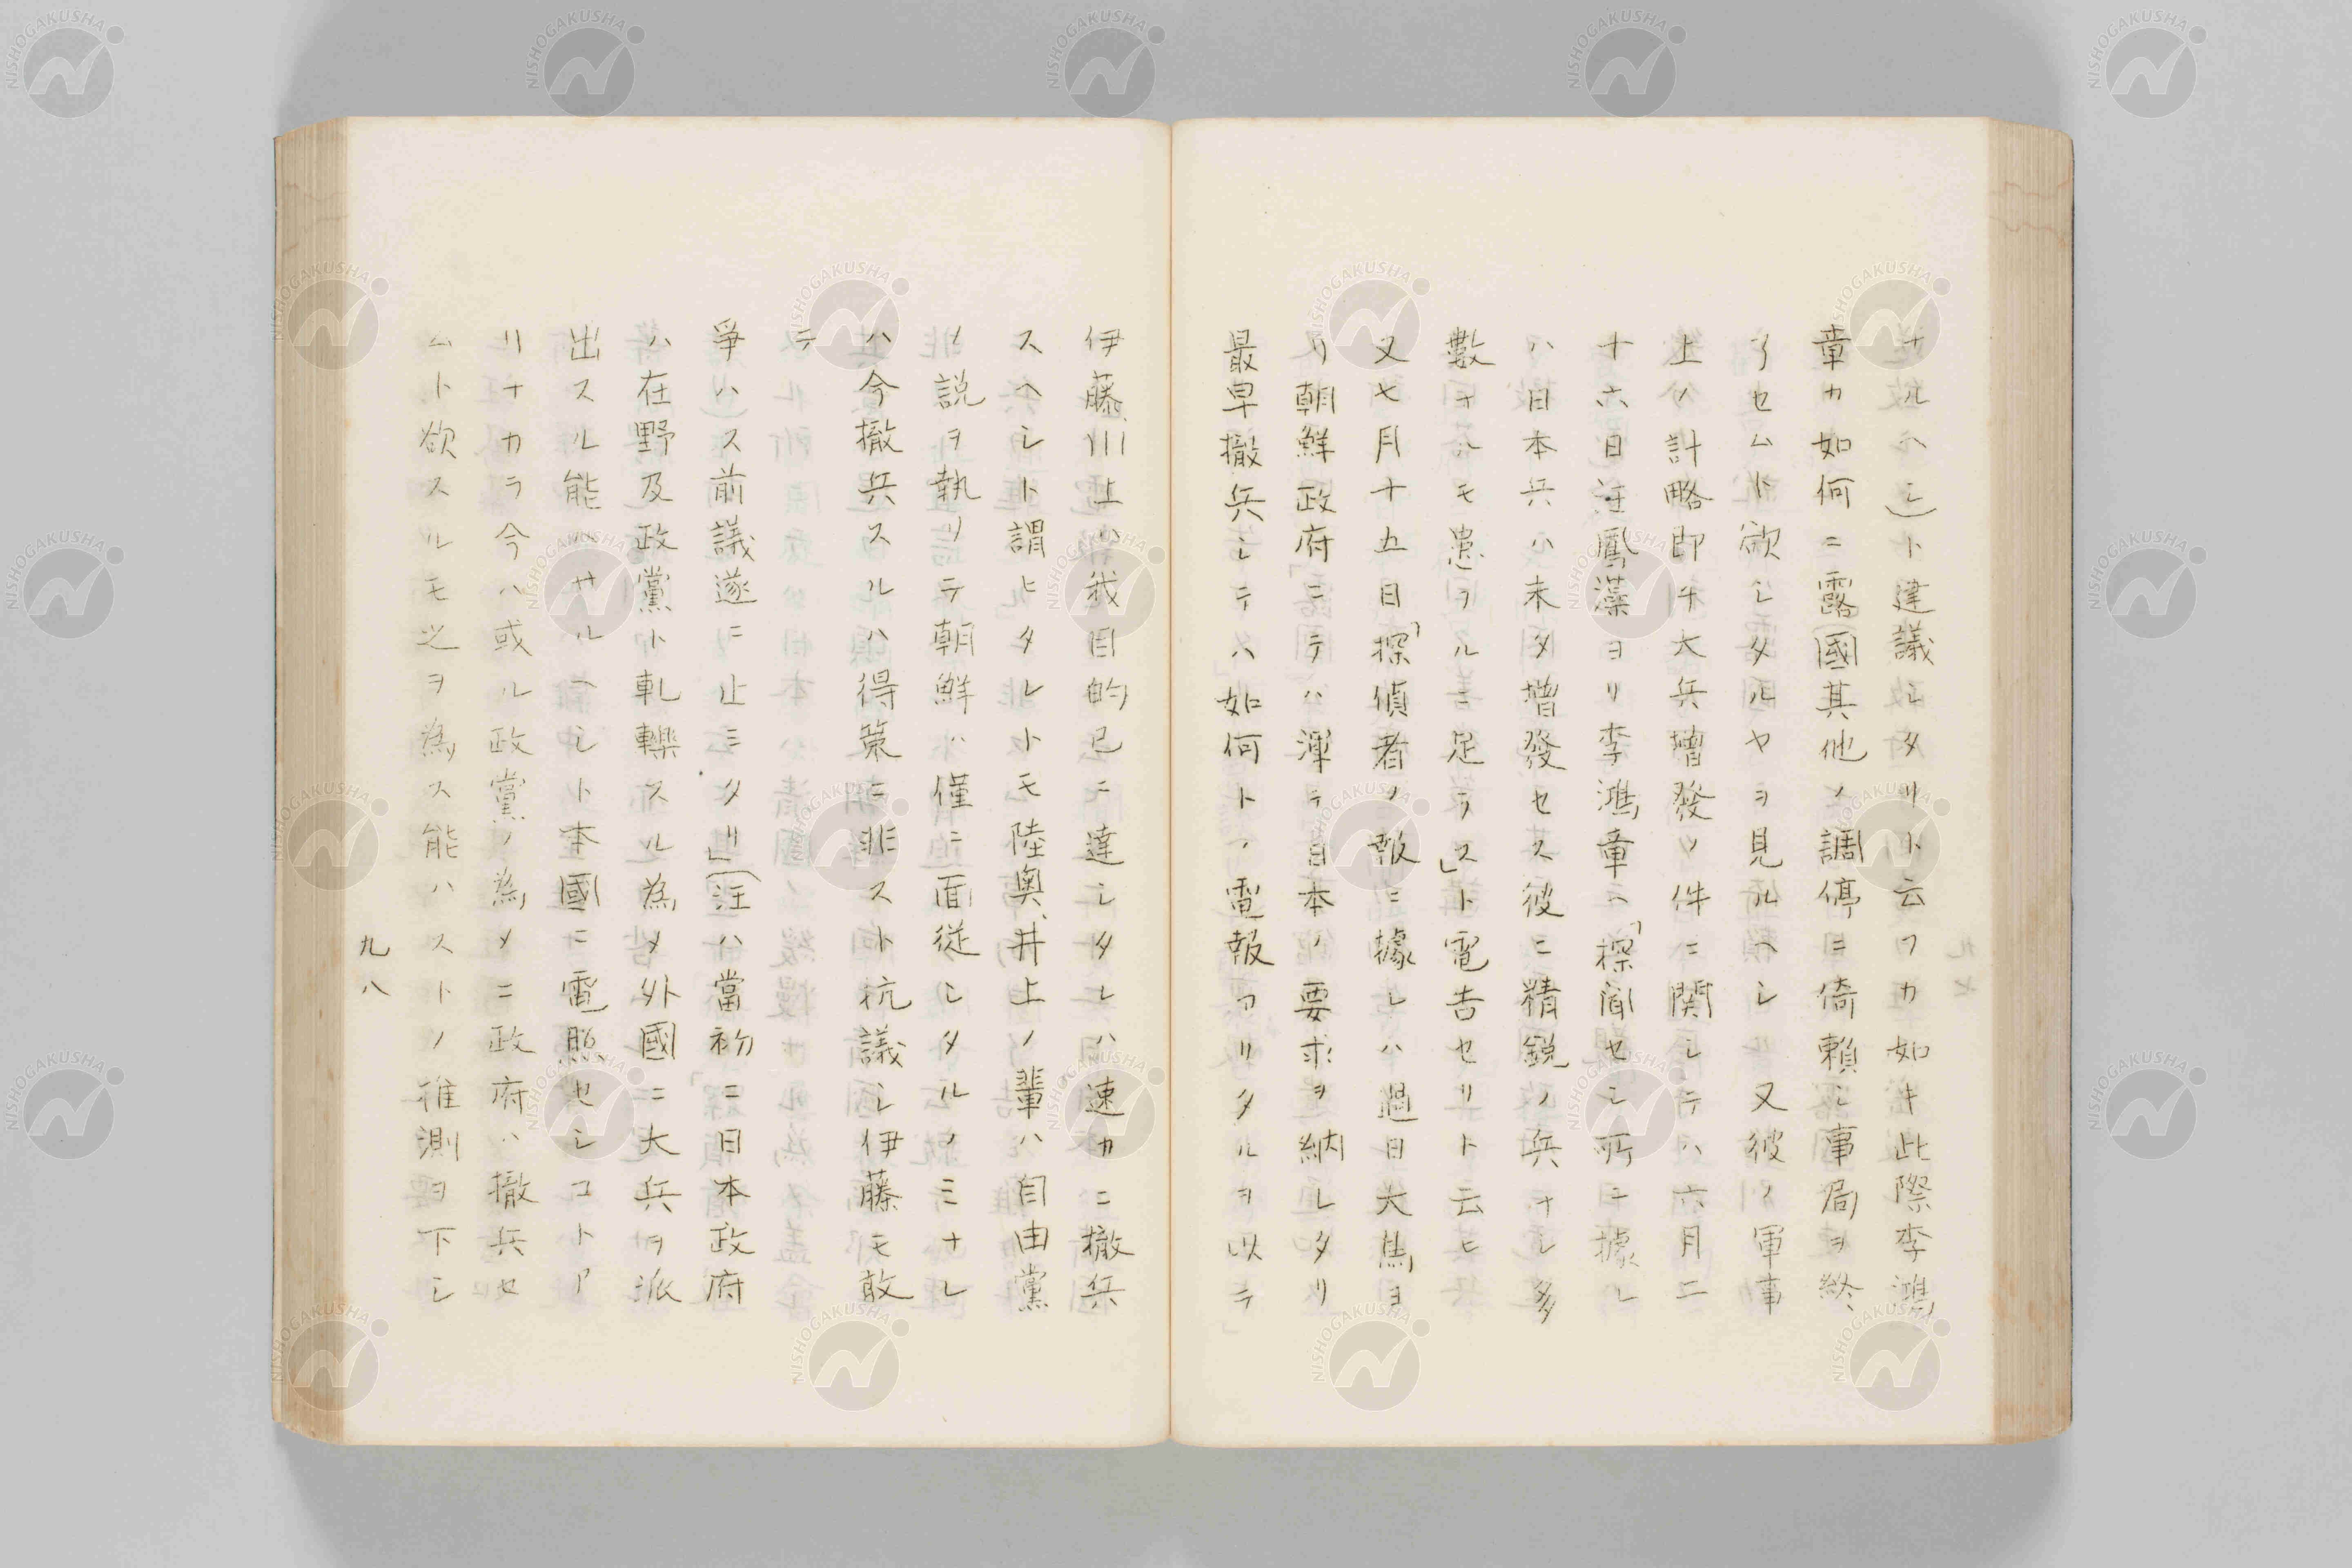 ナルヘシ)ト建議シタリト云フカ如キ此際李鴻
章カ如何ニ露國其他ノ調停ニ倚頼シ事局ヲ終
了セムト欲シタルヤヲ見ルヘシ 又彼ノ軍事
上ノ計略即チ大兵増發ノ件ニ関シテハ六月二
十六日汪鳳藻ヨリ李鴻章ヘ「探聞セシ所ニ據レ
ハ日本兵ハ未タ増發セス彼ニ精鋭ノ兵ナシ多
數ナルモ患フルニ足ラス」ト電告セリト云ヒ
又七月十五日「探偵者ノ報ニ據レハ過日大鳥ヨ
リ朝鮮政府ニテハ渾テ日本ノ要求ヲ納レタリ
最早撤兵シテハ如何トノ電報アリタルヲ以テ
伊藤、川上ハ我目的已ニ達シタレハ速カニ撤兵
スヘシト謂ヒタレトモ陸奥、井上ノ輩ハ自由黨
ノ説ヲ執リテ朝鮮ハ僅ニ面従シタルノミナレ
ハ今撤兵スルハ得策ニ非スト抗議シ伊藤モ敢
テ
爭ハス前議遂ニ止ミタリ」(汪ハ當初ニ日本政府
ハ在野及政黨ト軋轢スル為メ外國ニ大兵ヲ派
出スル能ハサルヘシト本國ニ電照セシコトア
リナカラ今ハ或ル政黨ノ為メニ政府ハ撤兵セ
ムト欲スルモ之ヲ為ス能ハストノ推測ヲ下シ
九八
NISHOGAKUSHA